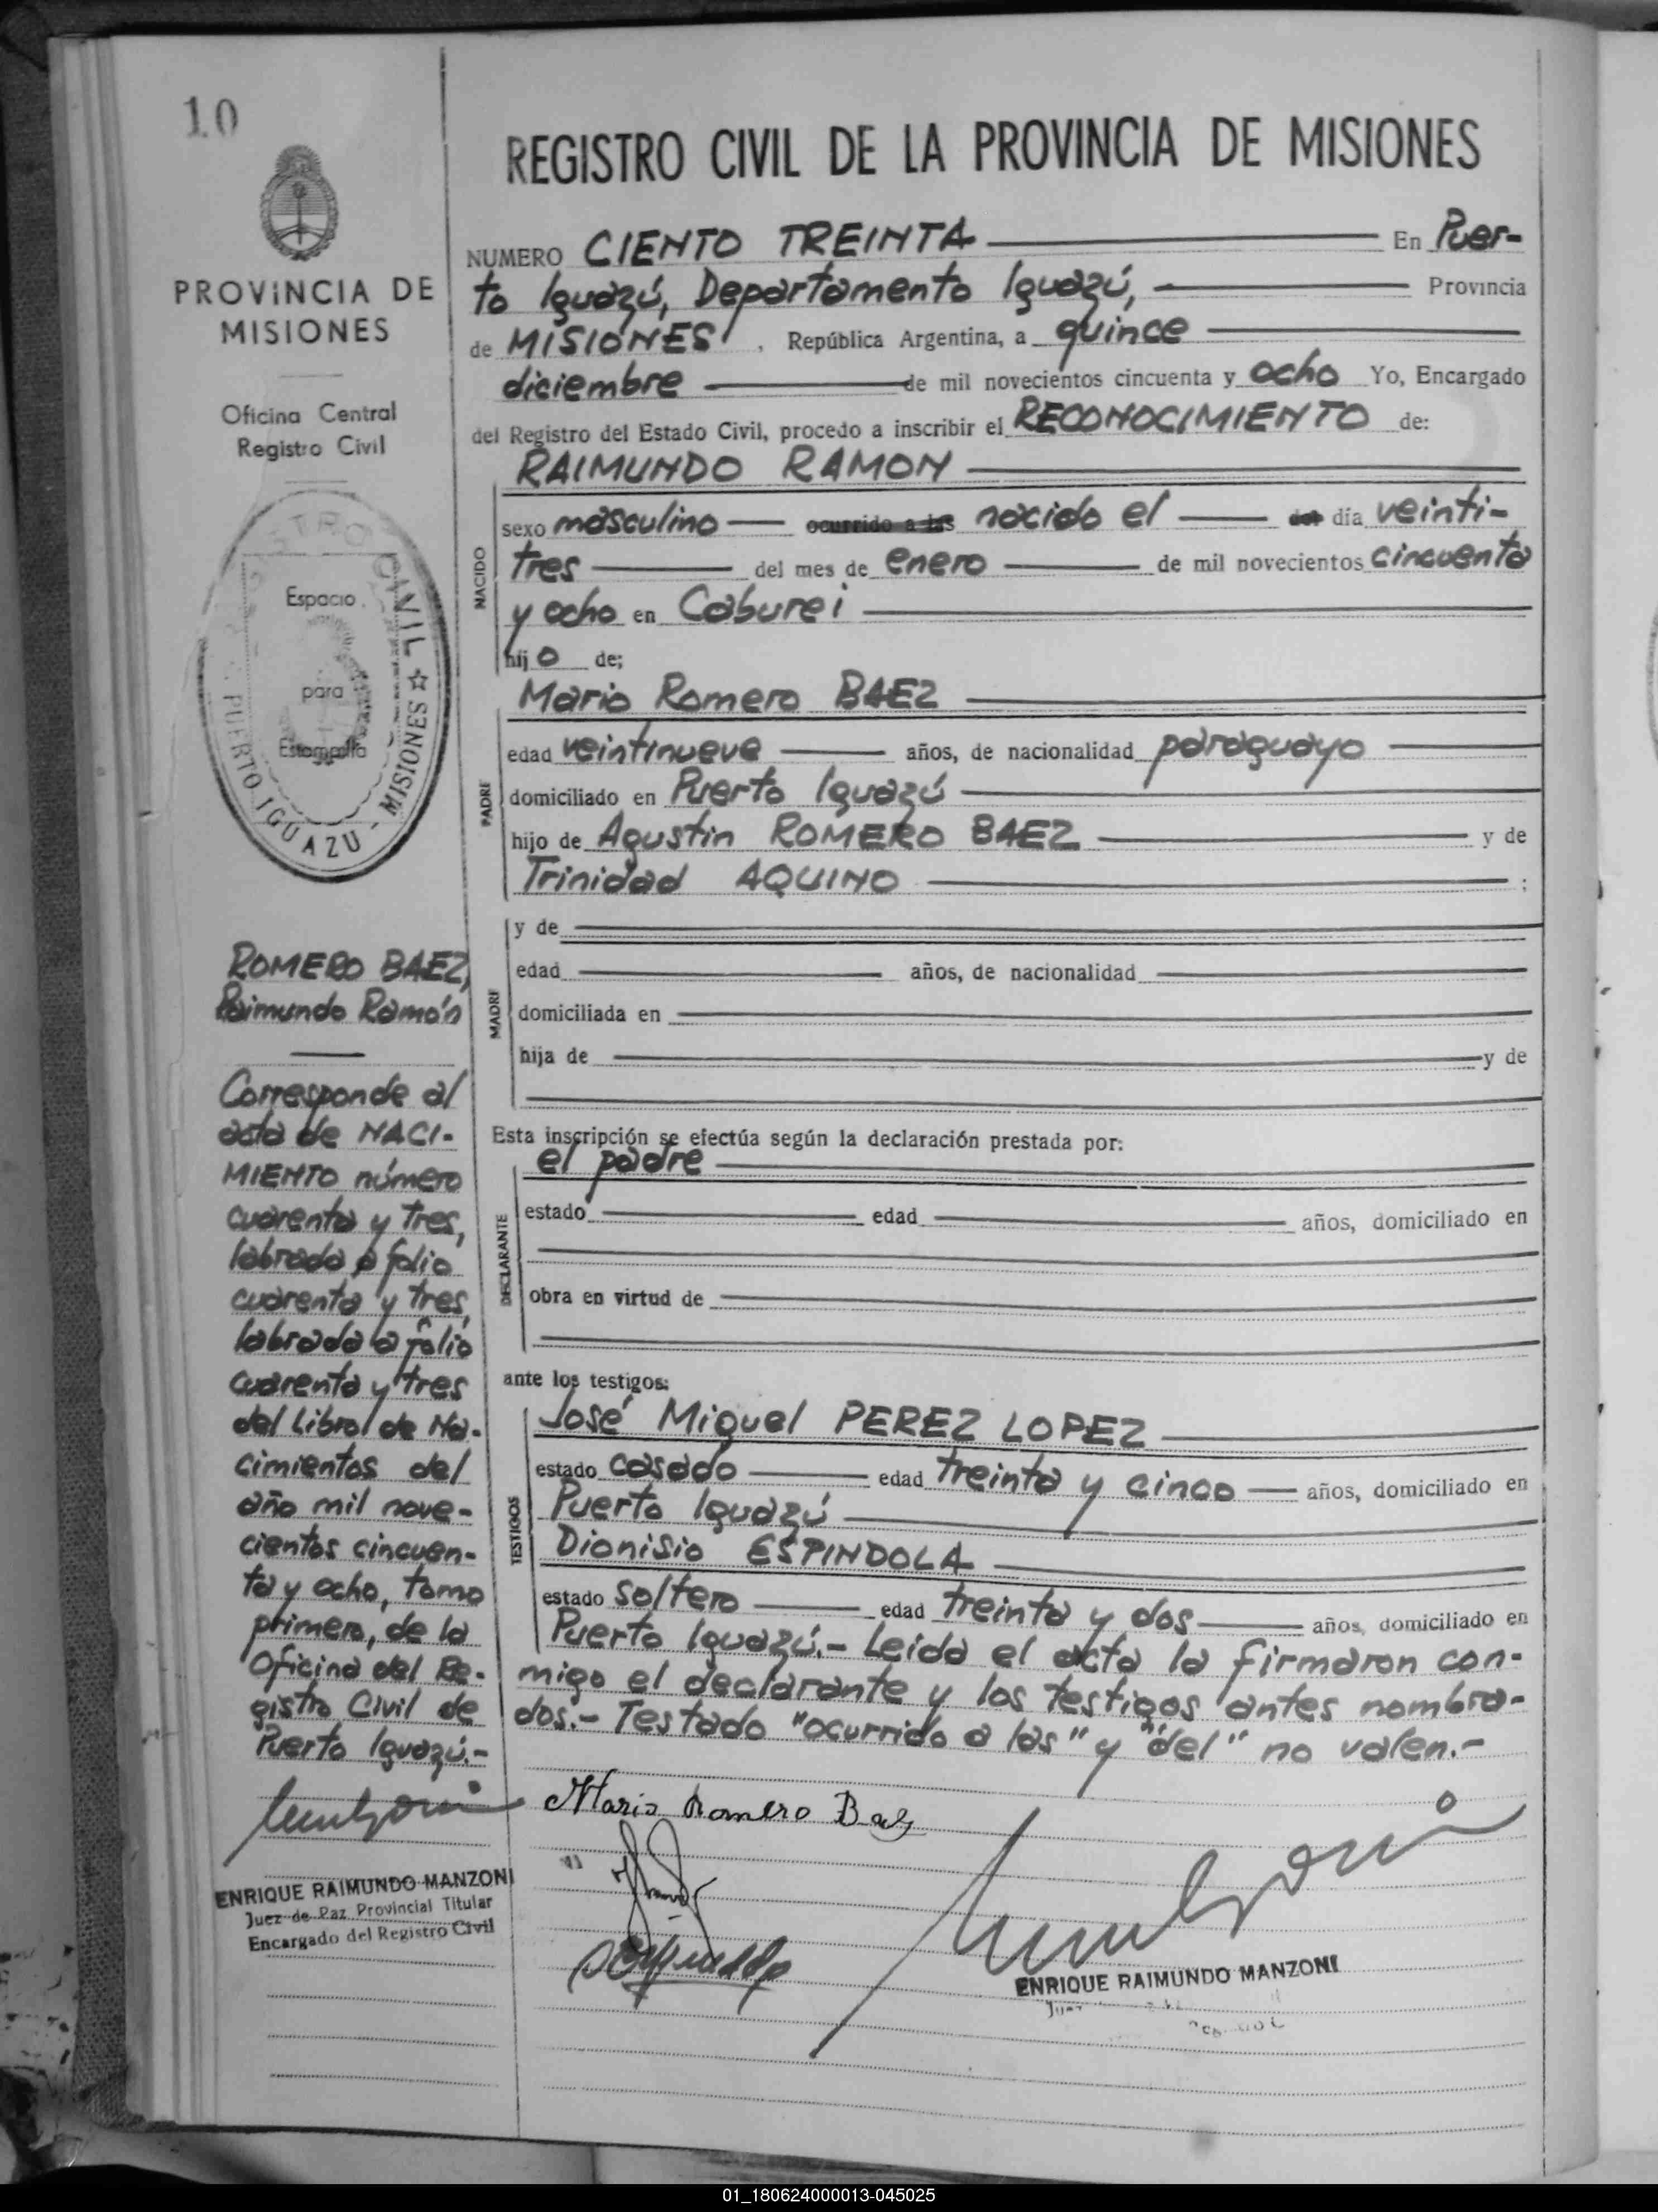 10
PROVINCIA DE
MISIONES
Oficina Central
Registro Civil
REGISTRO CIVIL ☆
PUERTO IGUAZU - MISIONES
Espacio
para
Estampilla
ROMERO BAEZ,
Raimundo Ramón
Corresponde al
acta de NACI-
MIENTO número
cuarenta y tres,
labrada a folio
cuarenta y tres,
labrada a folio
cuarenta y tres
del Libro de Na-
cimientos del
año mil nove-
cientos cincuen-
ta y ocho, tomo
primero, de la
Oficina del Re-
gistro Civil de
Puerto Iguazú.-
ENRIQUE RAIMUNDO MANZONI
Juez de Paz Provincial Titular
Encargado del Registro Civil
REGISTRO CIVIL DE LA PROVINCIA DE MISIONES
NUMERO CIENTO TREINTA En Puer-
to Iguazú, Departamento Iguazú, Provincia
de MISIONES, República Argentina, a quince
diciembre de mil novecientos cincuenta y ocho Yo, Encargado
del Registro del Estado Civil, procedo a inscribir el RECONOCIMIENTO de:
RAIMUNDO RAMON
NACIDO
sexo masculino ocurrido a las nacido el del día veinti-
tres del mes de enero de mil novecientos cincuenta
y ocho en Caburei
hijo de;
PADRE
Mario Romero BAEZ
edad veintinueve años, de nacionalidad paraguayo
domiciliado en Puerto Iguazú
hijo de Agustin ROMERO BAEZ y de
Trinidad AQUINO ;
MADRE
y de
edad años, de nacionalidad
domiciliada en
hija de y de
Esta inscripción se efectúa según la declaración prestada por:
DECLARANTE
el padre
estado edad años, domiciliado en
obra en virtud de
ante los testigos:
TESTIGOS
José Miguel PEREZ LOPEZ
estado casado edad treinta y cinco años, domiciliado en
Puerto Iguazú
Dionisio ESPINDOLA
estado soltero edad treinta y dos años, domiciliado en
Puerto Iguazú.- Leida el acta la firmaron con-
migo el declarante y los testigos antes nombra-
dos.- Testado "ocurrido a las" y "del" no valen.-
Mario Romero Baez
ENRIQUE RAIMUNDO MANZONI
01_180624000013-045025